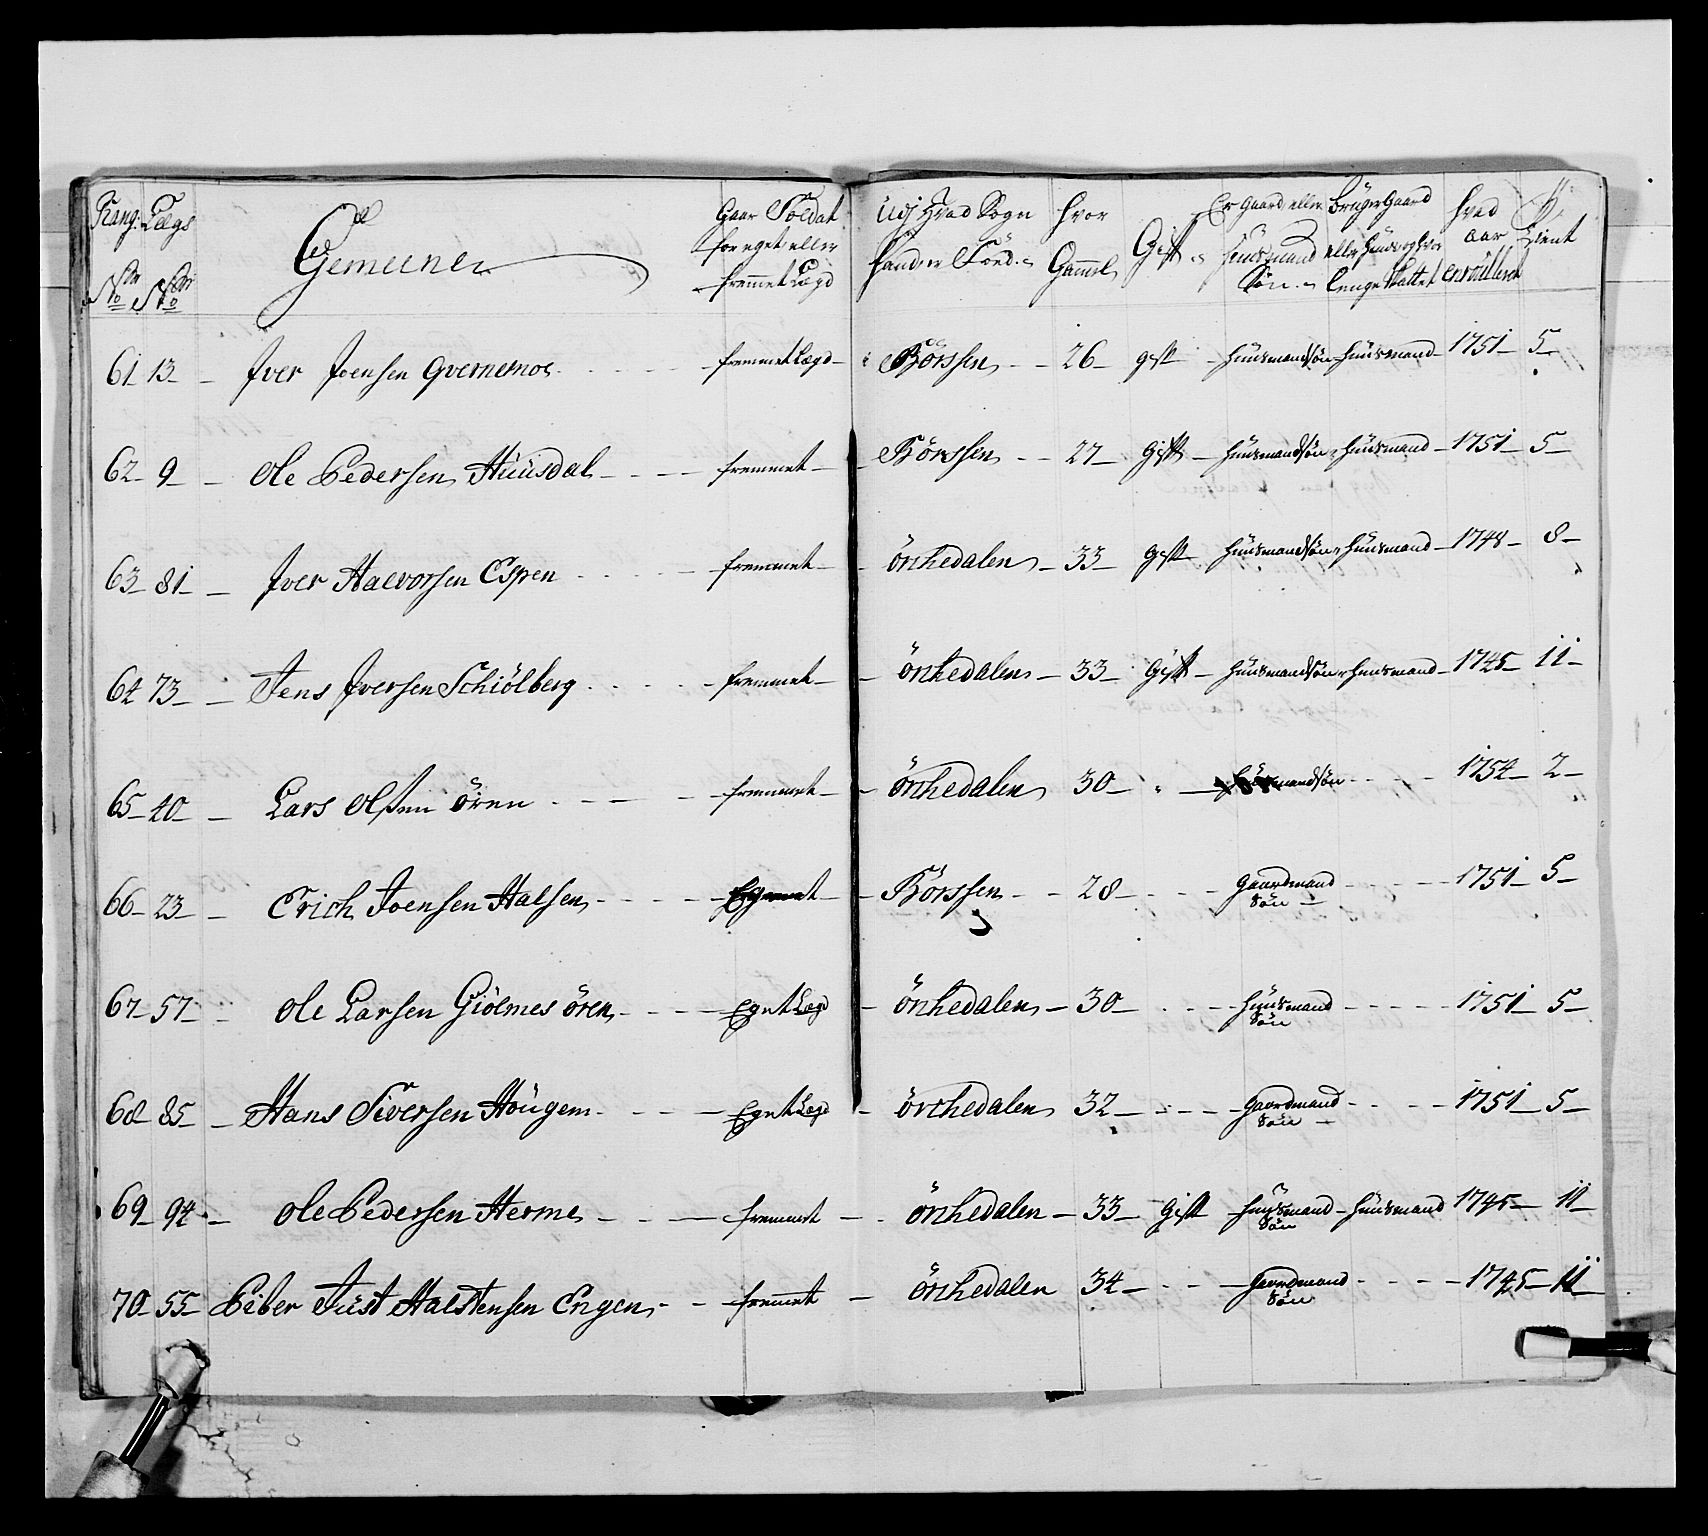 Rang. Lægs Gemeene Gaar Soldat for eget eller fremmet Lægd udj Hvad Sogn hand er Föd. hvor Gammel Gift Er Gaard eller Huusmand Sön. Bruger Gaard eller Huus og hvor lenge hvad aar enroullerit Tient
No No
61 13 Jver Joensen Gvernemoe fremmet Lægd Börssen 26 gift Huusmandsön Huusmand 1751 5
62 9 Ole Pedersen Huusdal fremmet Börssen 27 Gift Huusmandsön Huusmand 1751 5
63 81 Jver Halvorsen Espen fremmet örchedalen 33 gift Huusmandsön Huusmand 1748 8
64 73 Jens Jversen Schiölberg fremmet örchedalen 33 Gift Huusmandsön Huusmand 1745 11
65 40 Lars Olsen ören fremmet örchedalen 30 mandsön 1754 2
66 23 Erich Joensen Halsen Börssen 28 Gaardmand Sön 1751 5
67 57 Ole Larsen Giölmes ören Eget Lægd örchedalen 30 Huusmand Sön 1751 5
68 85 Hans Siversen Hougem Eget Lægd örchedalen 32 Gaardmand Sön 1751 5
69 94 Ole Pedersen Herme fremmet örchedalen 33 Gift Huusmand Sön Huusmand 1745 11
70 55 Peber Just Halstensen Engen fremmet örchedalen 34 Gaardmand Sön 1745 11